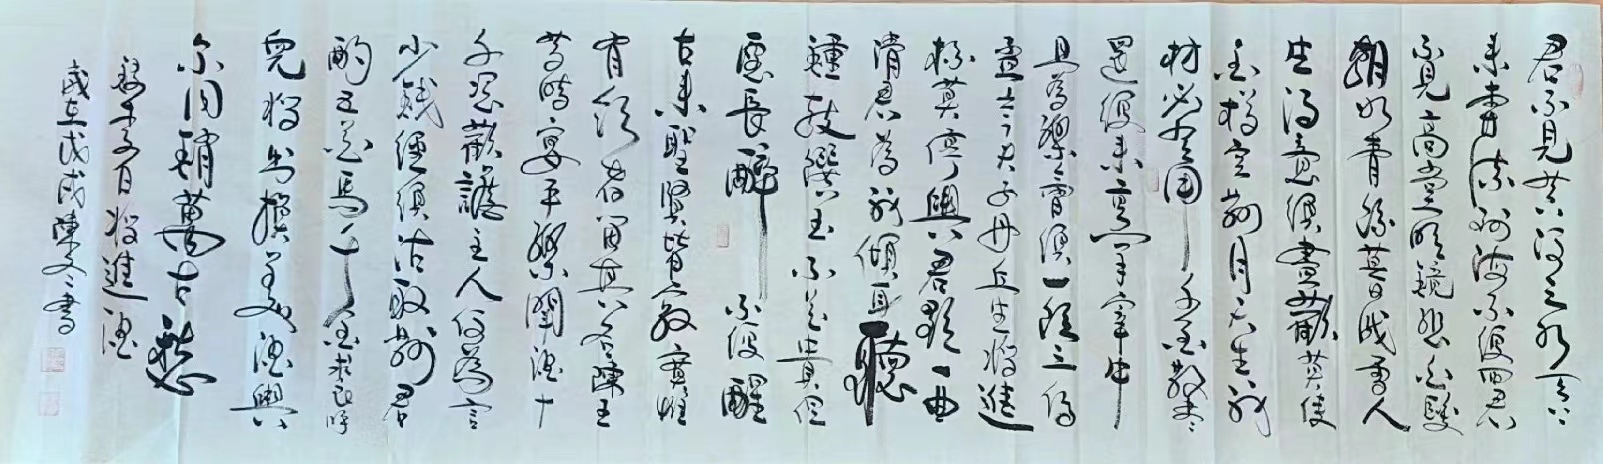 君不見黃河之水天上
來奔流到海不復回君
不見高堂明鏡悲白髮
朝如青絲暮成雪人
生得意須盡歡莫使
金樽空對月天生我
材必有用千金散盡
還復來烹羊宰牛
且為樂會須一飲三百
盃岑夫子丹丘生將進
杯莫停與君歌一曲
請君為我傾耳聽
鐘鼓饌玉不足貴但
願長醉不復醒
古來聖賢皆寂寞惟
有飲者留其名陳王
昔時宴平樂鬥酒十
千恣歡謔主人何為言
少錢徑須沽取對君
酌五花馬千金裘呼
兒將出換美酒與
尔同銷萬古愁
李白將進酒
歲在戊戌陳文書